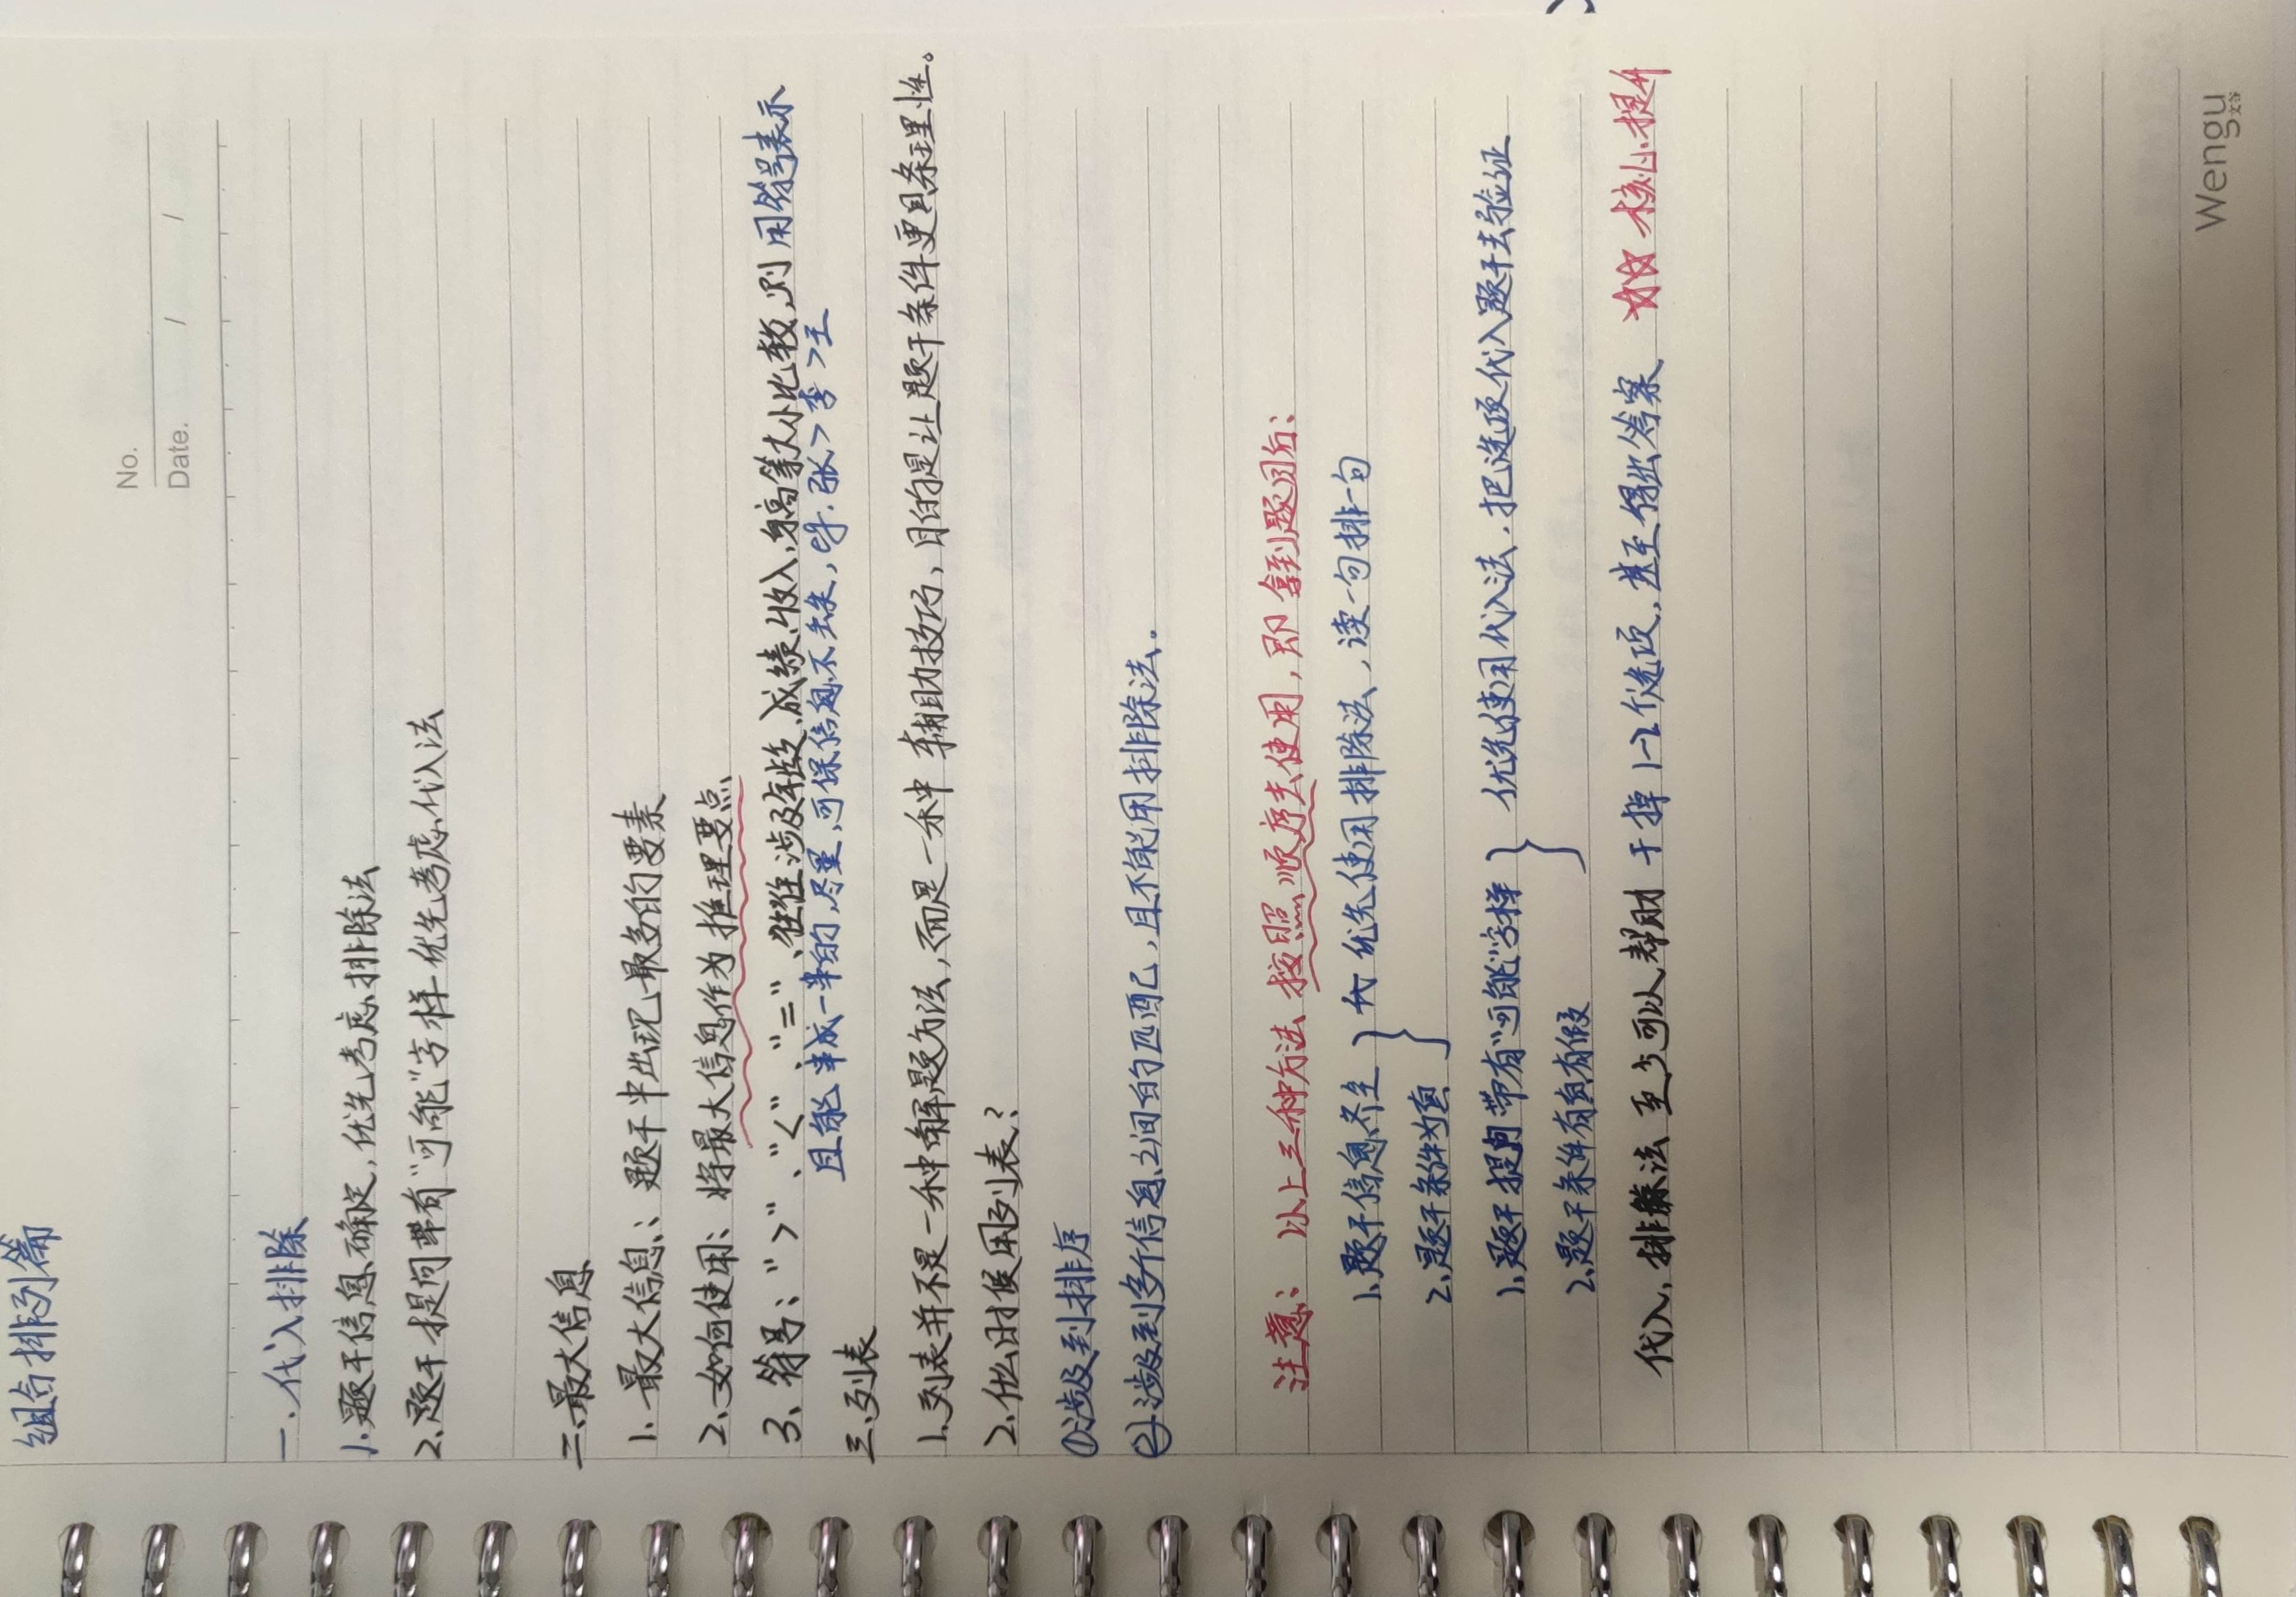 组合排列篇
No.
Date. / /
一.代入排除
1.题干信息确定,优先考虑排除法
2.题干提问带有"可能"字样优先考虑代入法
二、最大信息
1.最大信息:题干中出现最多的要素
2.如何使用:将最大信息作为推理要点
3.符号:">"、"<"、"="、往往涉及年龄、成绩、收入、身高等大小比较,则用符号表示
且能串成一串的,尽量,可保信息不丢失,eg.张>李>王
三、列表
1.列表并不是一种解题方法,而是一种辅助技巧,目的是让题干条件更具条理性。
2.什么时候用列表?
①涉及到排序
②涉及到多个信息之间的匹配,且不能用排除法。
注意:以上三种方法按照顺序去使用,即拿到题目后:
1.题干信息齐全 } 优先使用排除法,读一句排一句
2.题干条件为真
1.题干提问带有"可能"字样 } 优先使用代入法,把选项代入题干去验证
2.题干条件有真有假
代入,排除法至少可以帮助干掉1-2个选项,甚至得出答案 ☆☆核心提升
Wengu
文谷